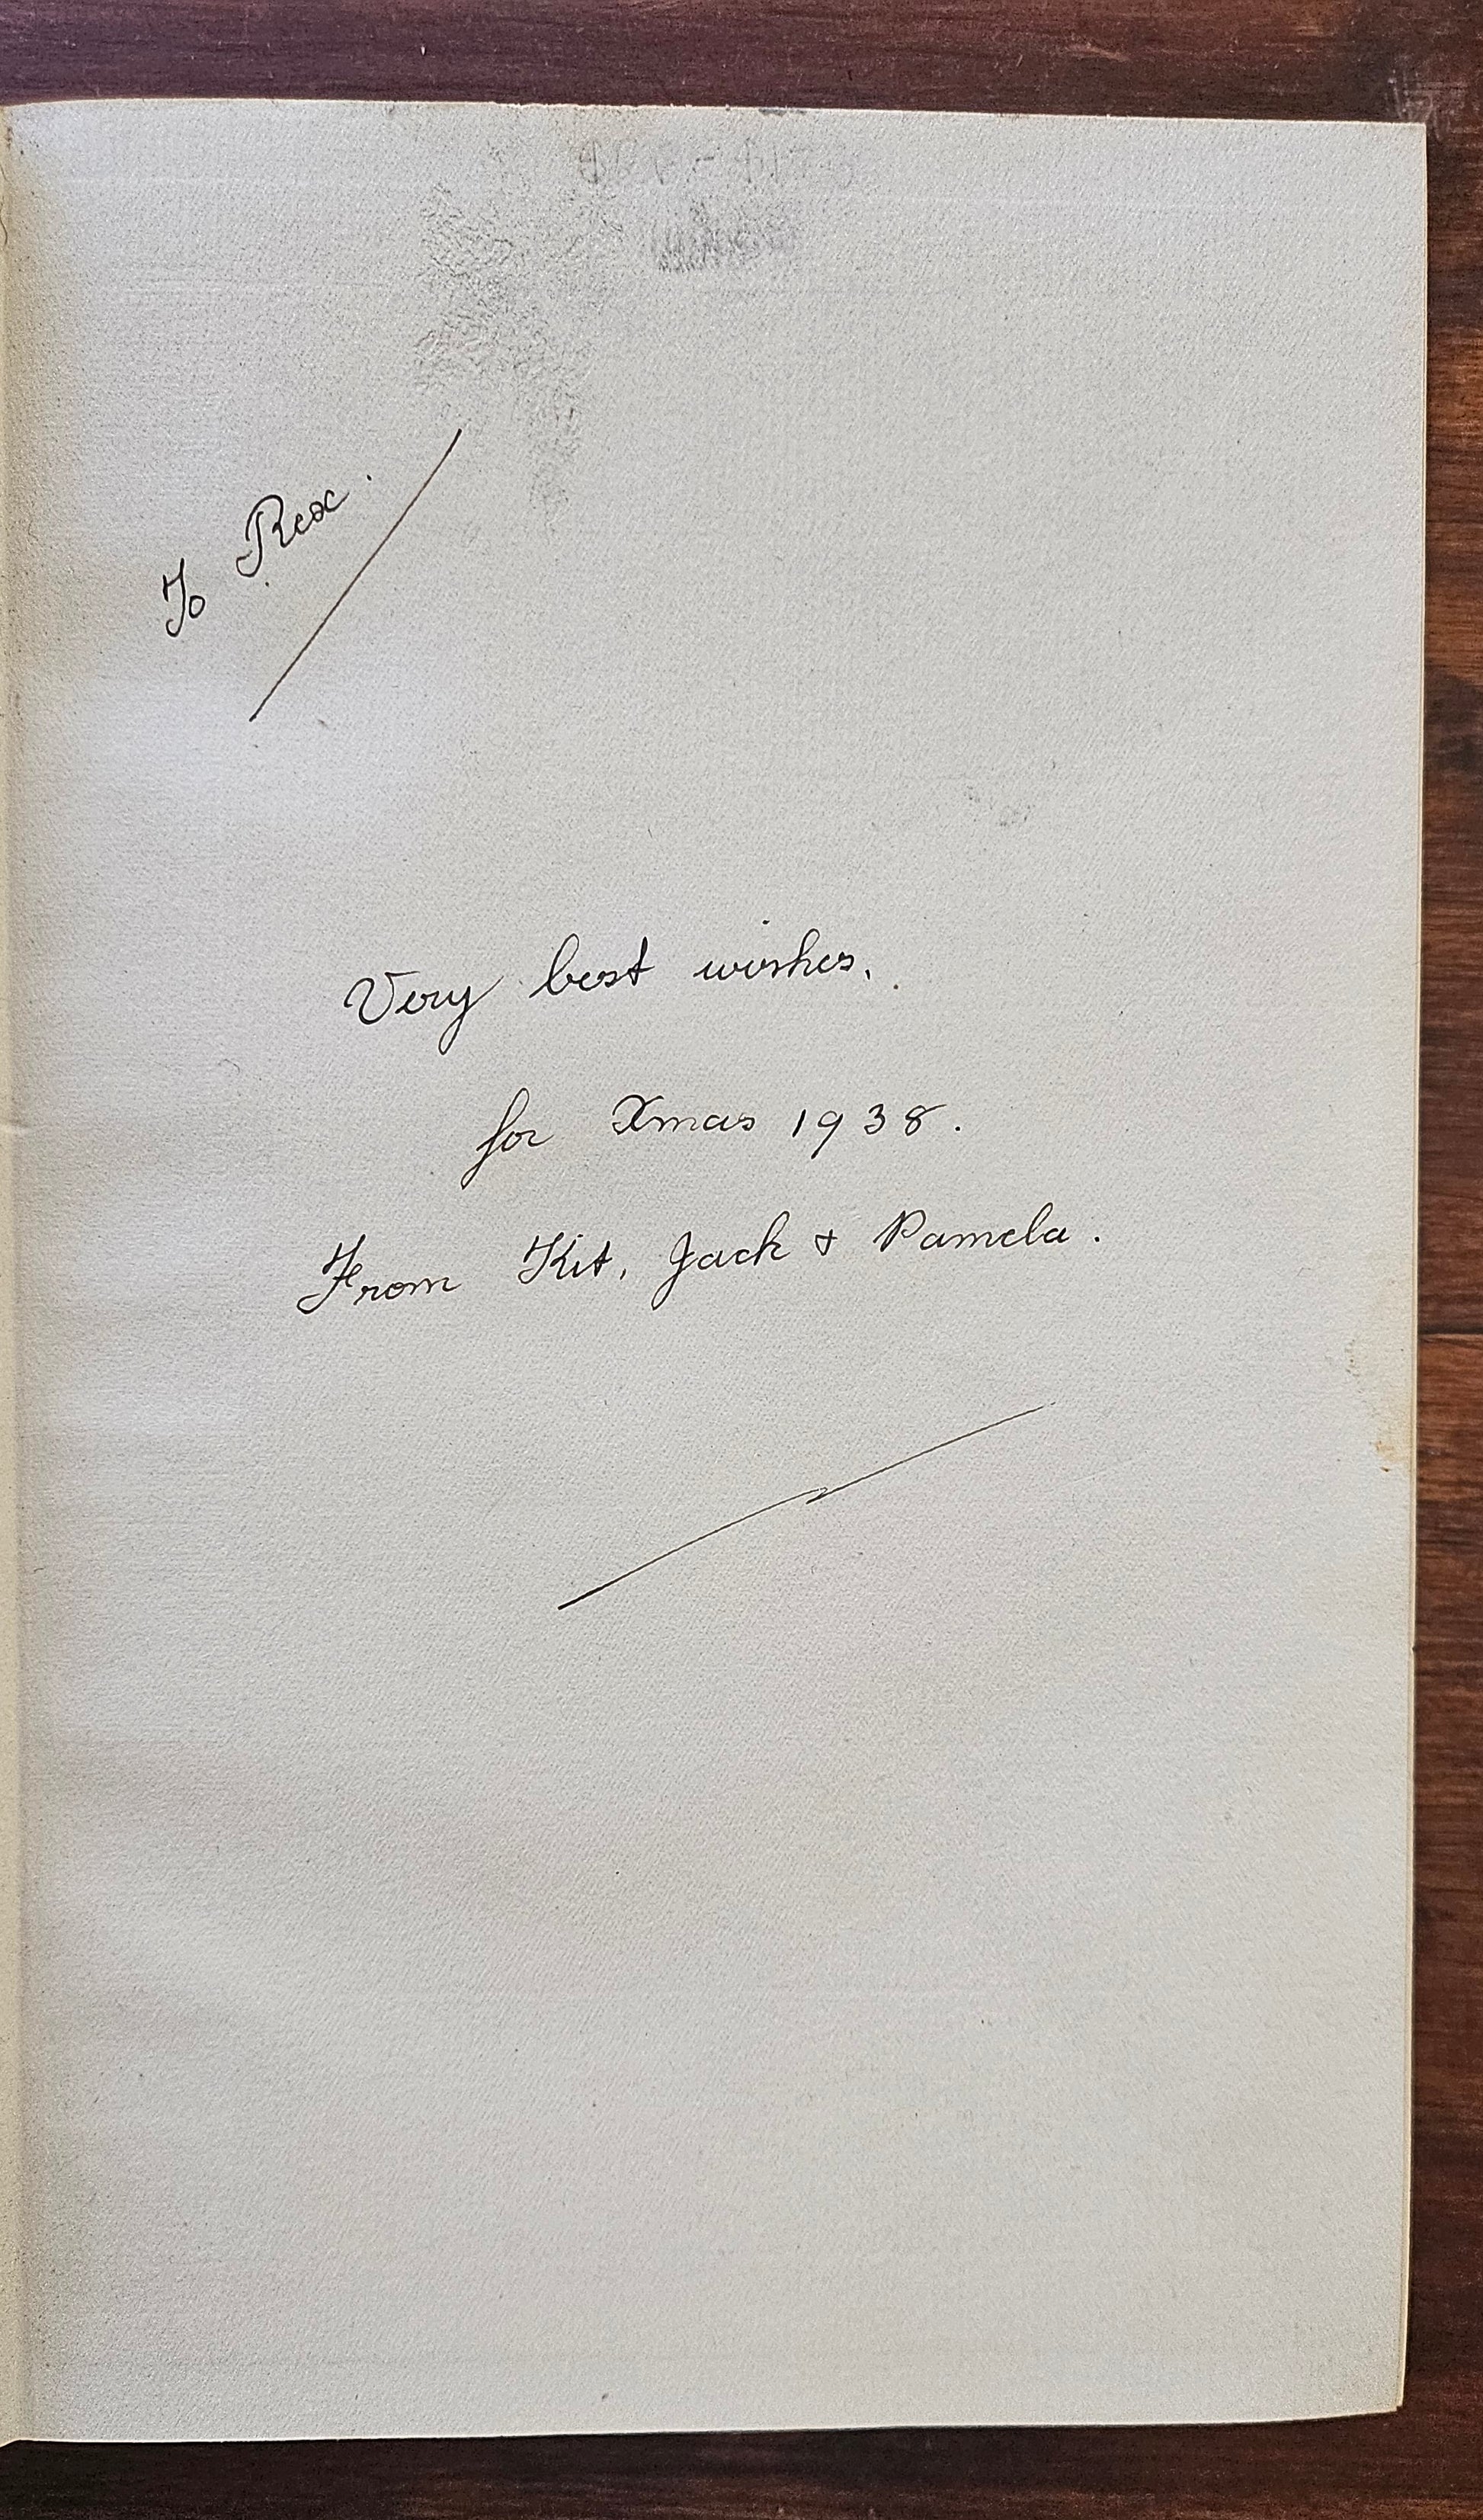 To Rex.
Very best wishes.
for Xmas 1938.
From Kit, Jack & Pamela.